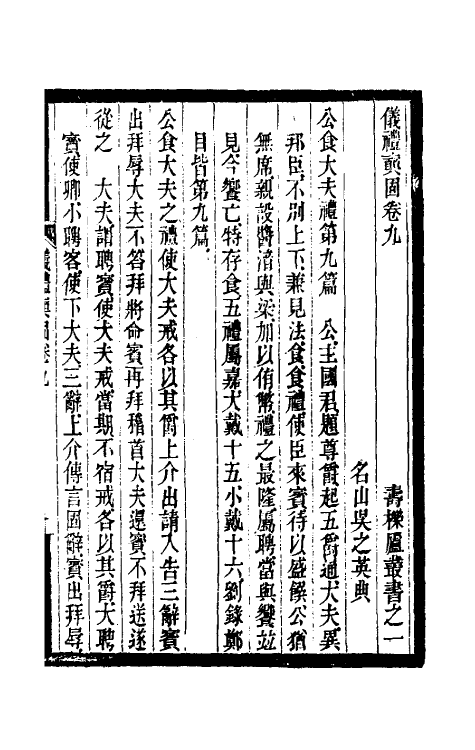 儀禮奭固卷九　壽櫟廬叢書之一
名山吳之英典
公食大夫禮第九篇　公主國君題尊爵起五爵通大夫異
邦臣不别上下兼見法食食禮使臣來賓待以盛饌公猶
無席親設醬湇與粱加以侑幣禮之最隆屬聘當與饗並
見今饗亡特存食五禮屬嘉大戴十五小戴十六劉錄鄭
目皆第九篇
公食大夫之禮使大夫戒各以其爵上介出請入告三辭賓
出拜辱大夫不答拜將命賓再拜稽首大夫還賓不拜送遂
從之　大夫謂聘賓使大夫戒當期不宿戒各以其爵大聘
賓使卿小聘客使下大夫三辭上介傳言固辭賓出拜辱
儀禮奭固卷九